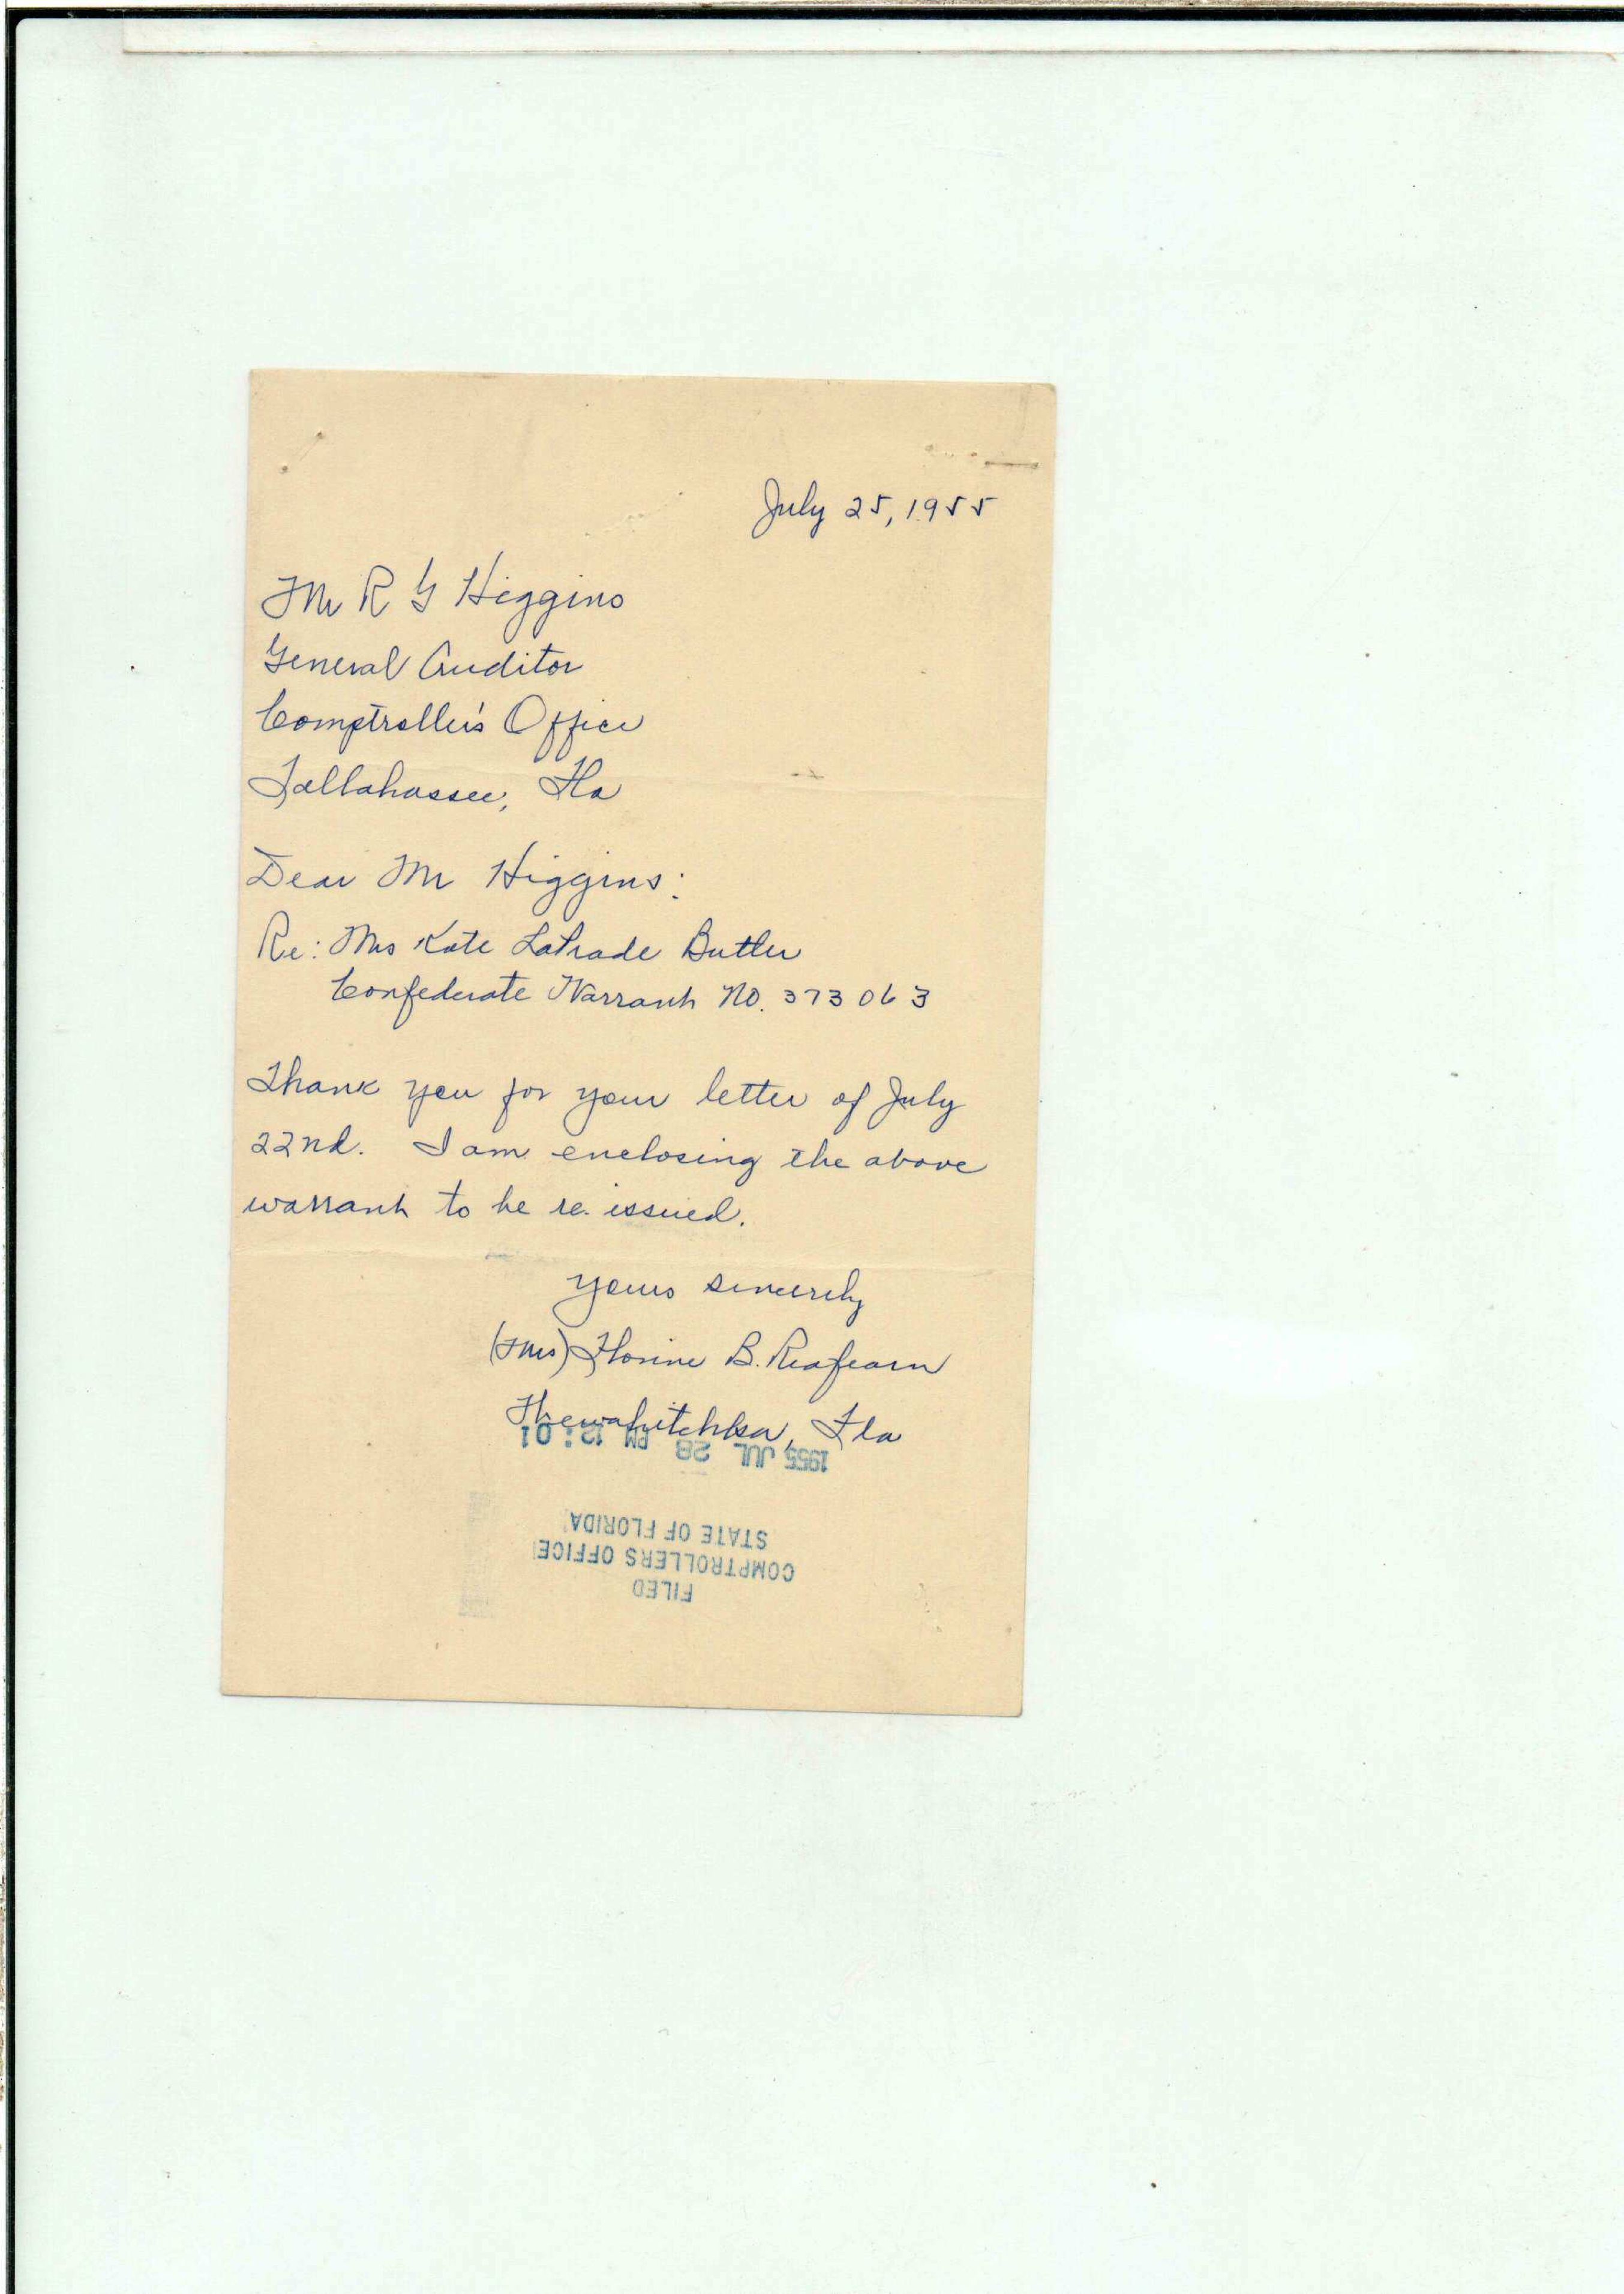 July 25, 1955
Mr R G Higgins
General Auditor
Comptroller's Office
Tallahassee, Fla
Dear Mr Higgins:
Re: Mrs Kate LaHrade Butler
Confederate Warrant No. 373063
Thank you for your letter of July
22nd. I am enclosing the above
warrant to be re-issued.
Yours sincerely
(Mrs) Florine B. Reafearn
Wewahitchka, Fla
1955 JUL 28 PM 12:01
STATE OF FLORIDA
COMPTROLLERS OFFICE
FILED